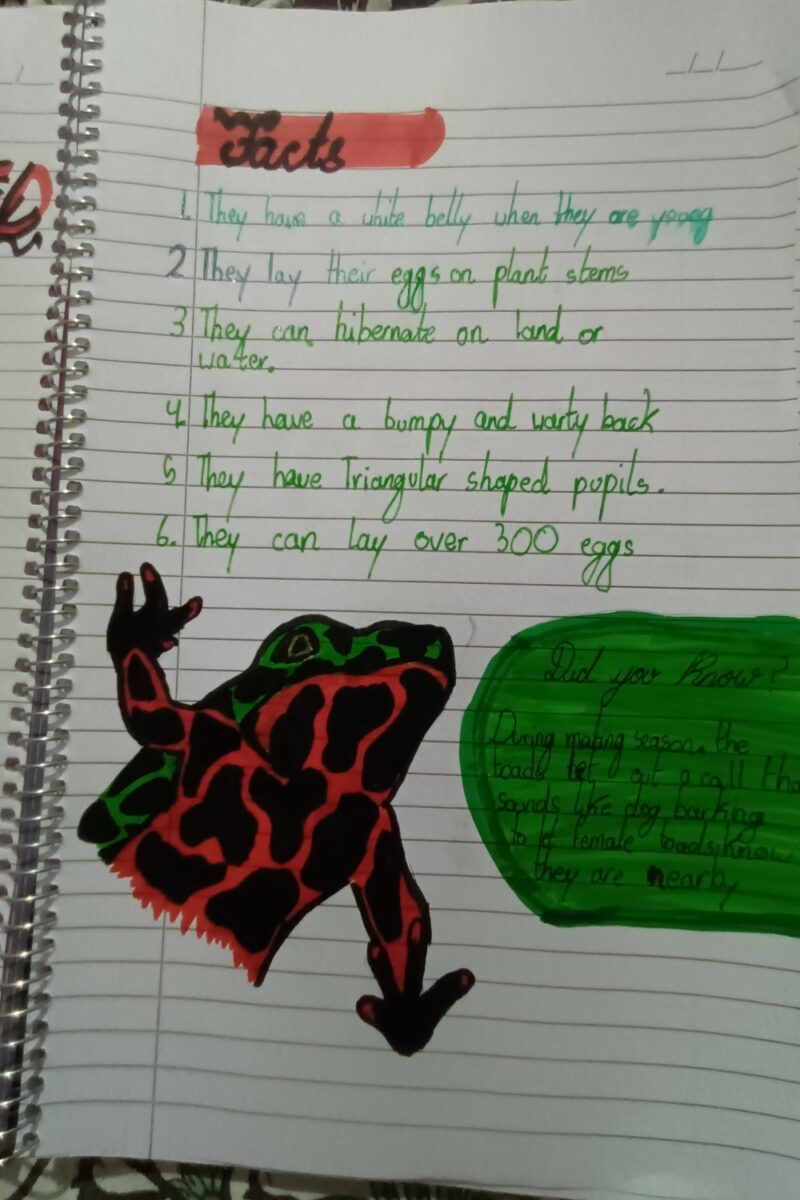 Facts
1. They have a white belly when they are young
2 They lay their eggs on plant stems
3 They can hibernate on land or
water.
4. They have a bumpy and warty back
5 They have Triangular shaped pupils.
6. They can lay over 300 eggs
Did you know?
During mating season, the
toads let out a call tha
sounds like dog barking
to let female toads know
they are nearby